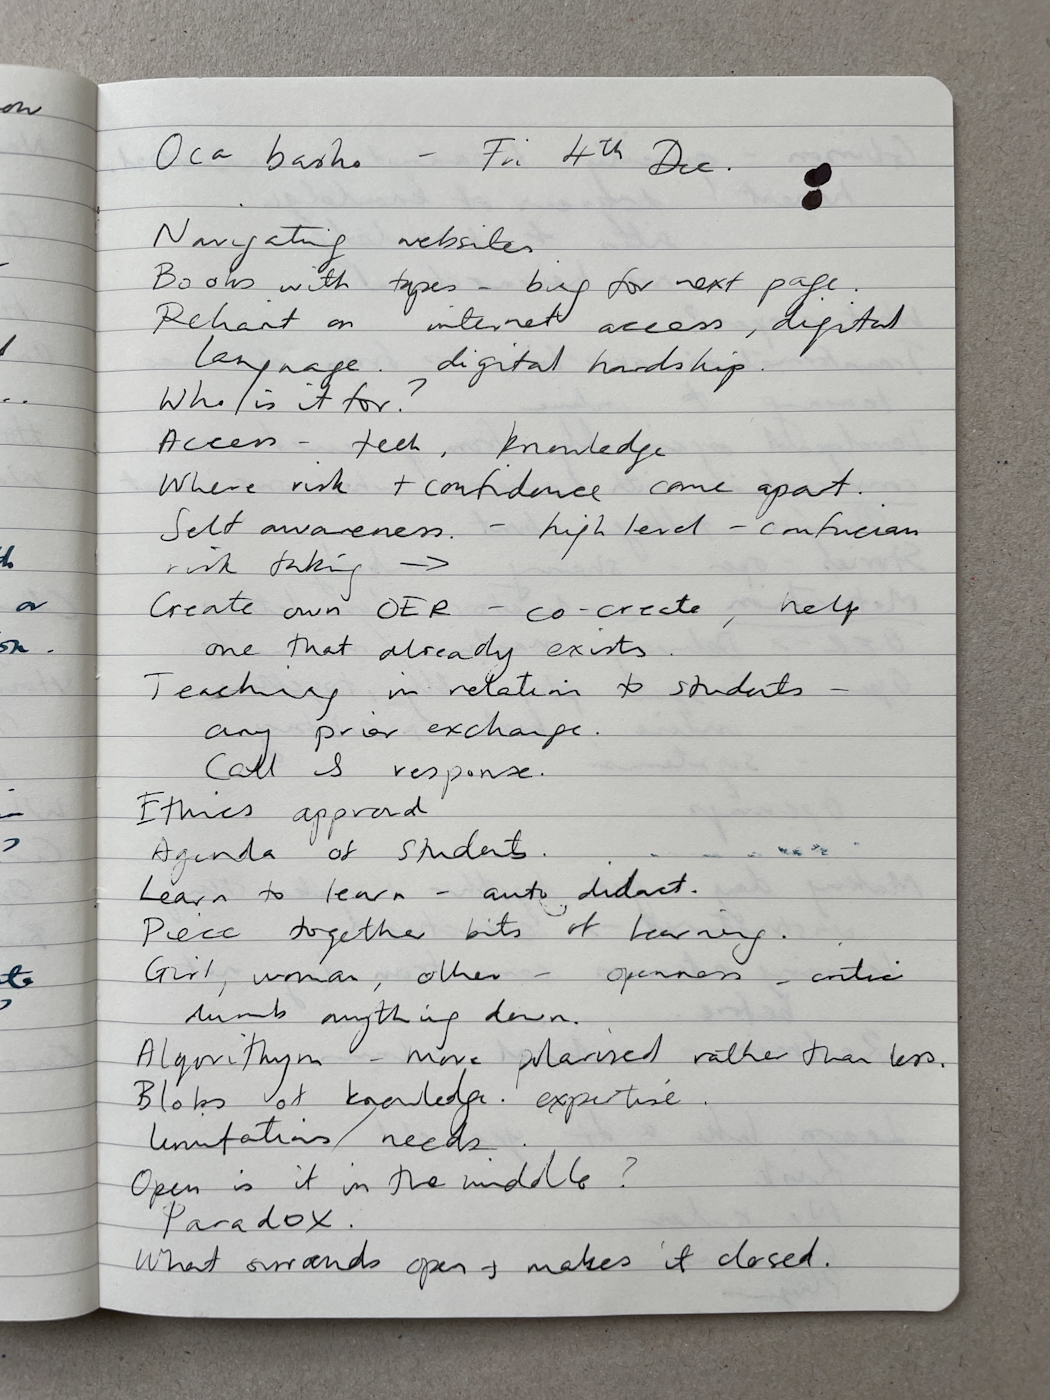 Oca basho - Fri 4th Dec.
Navigating websites
Books with tapes - bing for next page.
Reliant on internet access, digital
language. digital hardship.
Who is it for?
Access - tech, knowledge
Where risk + confidence come apart.
Self awareness. - high level - confucian
risk taking →
Create own OER - co-create, help
one that already exists.
Teaching in relation to students -
any prior exchange.
Call & response.
Ethics approval
Agenda of students.
Learn to learn - auto didact.
Piece together bits of learning.
Girl, woman, other - openness - critic
dumb anything down.
Algorithym - more polarised rather than less.
Blobs of knowledge. expertise.
limitations/needs.
Open is it in the middle?
Paradox.
What surrounds open + makes it closed.